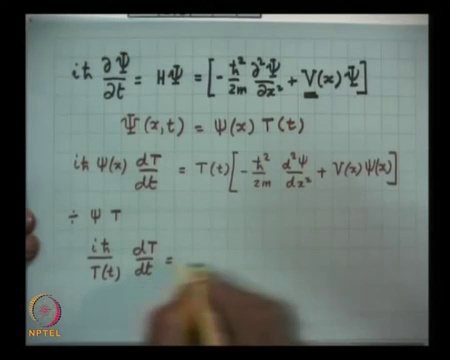 iℏ ∂Ψ/∂t = HΨ = [-ℏ²/2m ∂²Ψ/∂x² + V(x)Ψ]
Ψ(x,t) = ψ(x) T(t)
iℏ ψ(x) dT/dt = T(t)[-ℏ²/2m d²ψ/dx² + V(x)ψ(x)]
÷ ψ T
iℏ/T(t) dT/dt =
NPTEL